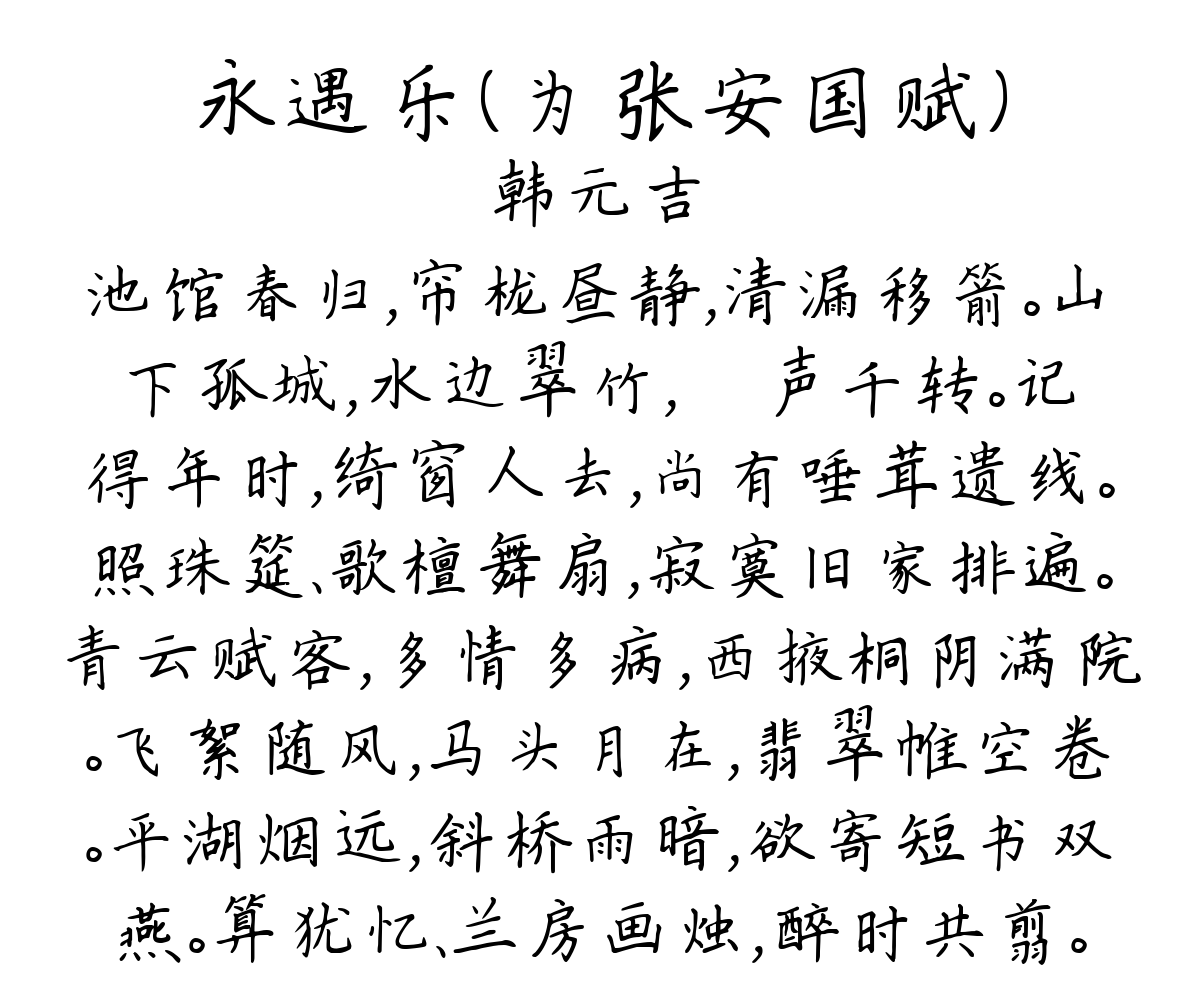 永遇乐(为张安国赋)
韩元吉
池馆春归,帘栊昼静,清漏移箭。山
下孤城,水边翠竹, 声千转。记
得年时,绮窗人去,尚有唾茸遗线。
照珠筵、歌檀舞扇,寂寞旧家排遍。
青云赋客,多情多病,西掖桐阴满院
。飞絮随风,马头月在,翡翠帷空卷
。平湖烟远,斜桥雨暗,欲寄短书双
燕。算犹忆、兰房画烛,醉时共翦。